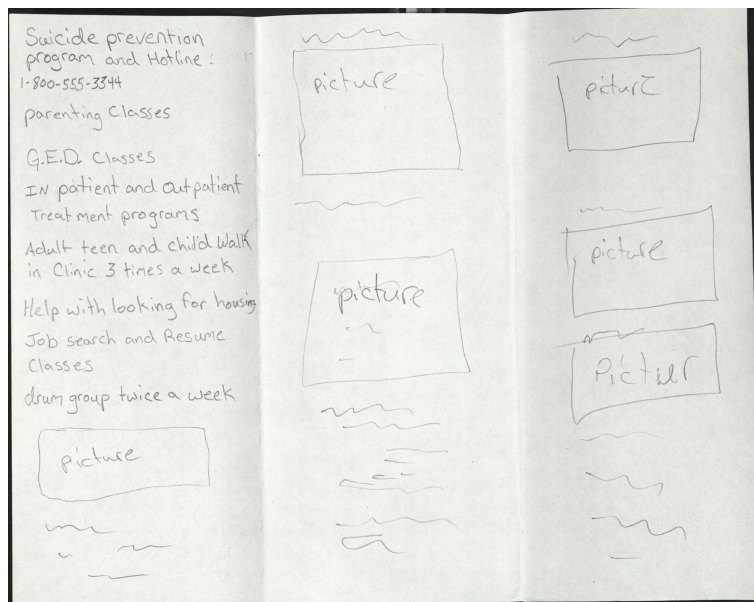 Suicide prevention
program and Hotline:
1-800-555-3344
parenting Classes
G.E.D. Classes
IN patient and outpatient
Treatment programs
Adult teen and child Walk
in Clinic 3 times a week
Help with looking for housing
Job search and Resume
Classes
drum group twice a week
picture
picture
picture
picture
picture
Pictuer